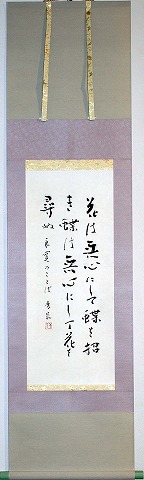 花は無心にして蝶を招
き蝶は無心にして花を
尋ぬ
良寛のことば